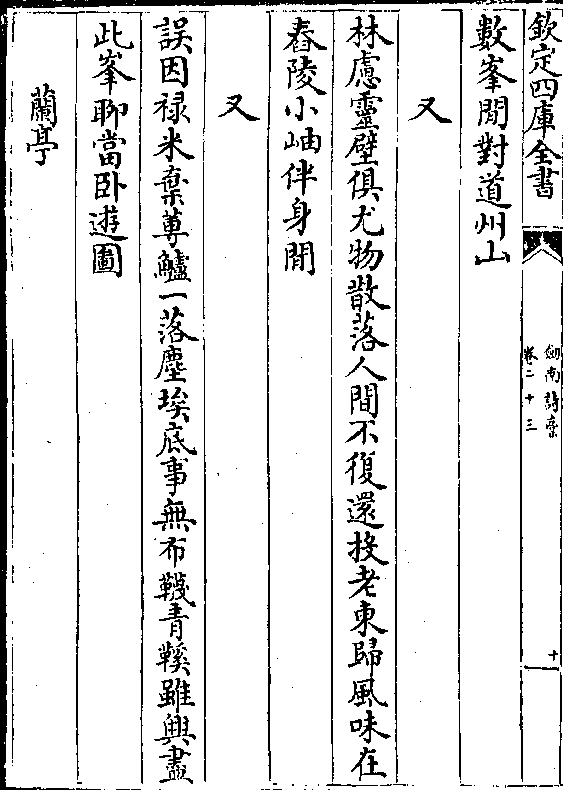 欽定四庫全書
劍南詩稾
卷二十三
十
數峯閒對道州山
又
林慮靈壁俱尤物散落人間不復還投老東歸風味在
舂陵小岫伴身閒
又
誤因禄米棄蓴鱸一落塵埃底事無布韈青鞵雖興盡
此峯聊當卧遊圖
蘭亭